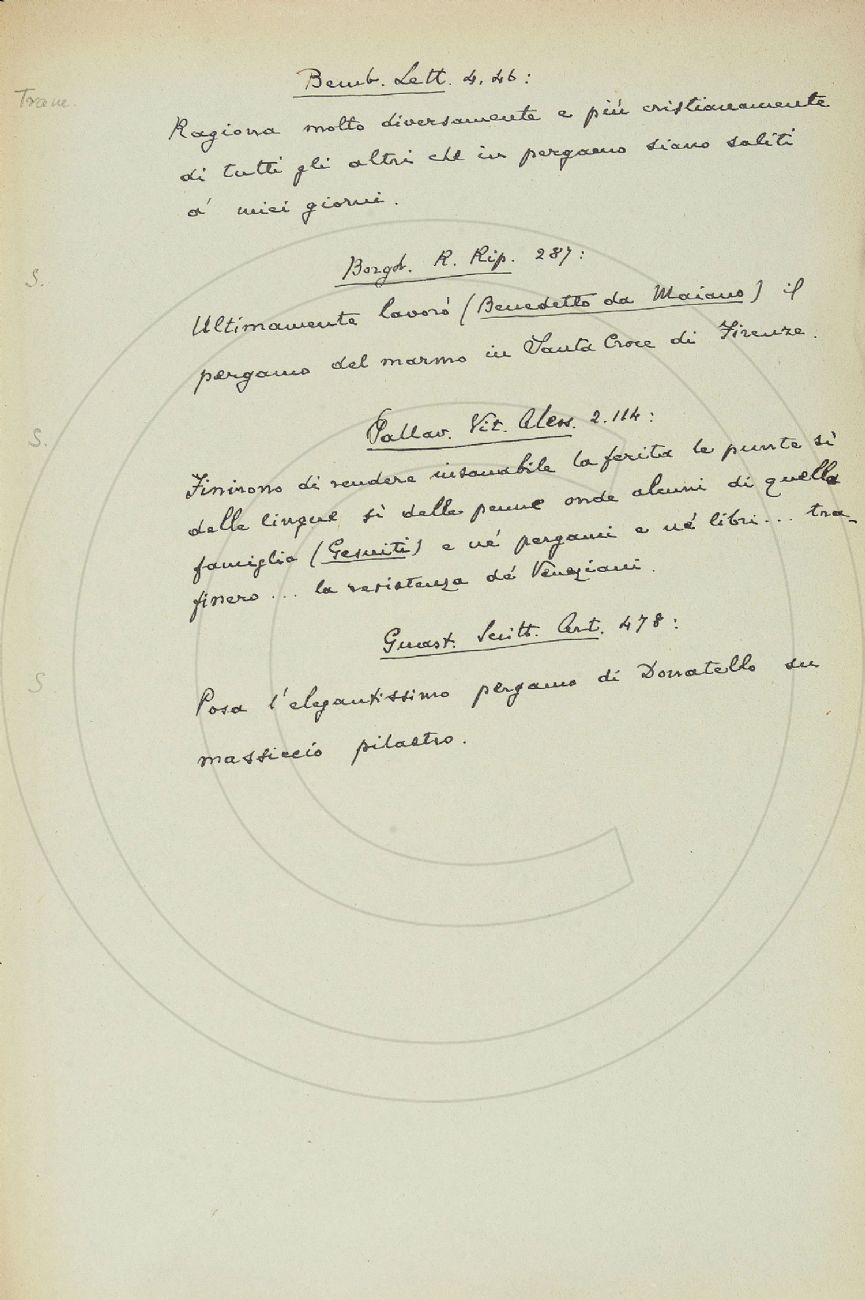 Bemb. Lett. 4. 46:
Tram.
Ragiona molto diversamente e più cristianamente
di tutti gli altri che in pergamo siano saliti
a' miei giorni.
Borgh. R. Rip. 287:
S.
Ultimamente lavorò (Benedetto da Maiano) il
pergamo del marmo in Santa Croce di Firenze.
Pallav. Vit. Aless. 2. 114:
S.
Finirono di rendere insanabile la ferita le punte sì
delle lingue sì delle penne onde alcuni di quella
famiglia (Gesuiti) e ne' pergami e ne' libri... tra-
fissero... la resistenza de' Veneziani.
Guast. Scritt. Art. 478:
S
Posa l'elegantissimo pergamo di Donatello su
massiccio pilastro.